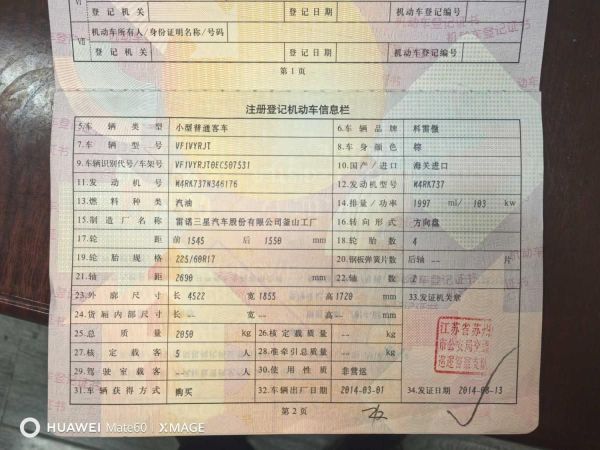 VI
登记机关 登记日期 机动车登记编号
VII 机动车所有人/身份证明名称/号码
登记机关 登记日期 机动车登记编号
第1页
注册登记机动车信息栏
5.车辆类型 小型普通客车 6.车辆品牌 科雷傲
7.车辆型号 VF1VYRJT 8.车身颜色 棕
9.车辆识别代号/车架号 VF1VYRJT0EC507531 10.国产/进口 海关进口
11.发动机号 M4RK737N346176 12.发动机型号 M4RK737
13.燃料种类 汽油 14.排量/功率 1997 ml/ 103 kw
15.制造厂名称 雷诺三星汽车股份有限公司釜山工厂 16.转向形式 方向盘
17.轮距 前 1545 后 1550 mm 18.轮胎数 4
19.轮胎规格 225/60R17 20.钢板弹簧片数 后轴 -- 片
21.轴距 2690 mm 22.轴数 2
23.外廓尺寸 长 4522 宽 1855 高 1720 mm 33.发证机关章
24.货厢内部尺寸 长 -- 宽 -- 高 -- mm
25.总质量 2050 kg 26.核定载质量 -- kg
27.核定载客 5 人 28.准牵引总质量 -- kg
29.驾驶室载客 -- 人 30.使用性质 非营运
31.车辆获得方式 购买 32.车辆出厂日期 2014-03-01 34.发证日期 2014-08-13
江苏省苏州
市公安局交通
巡逻警察支队
第2页
HUAWEI Mate60 | XMAGE